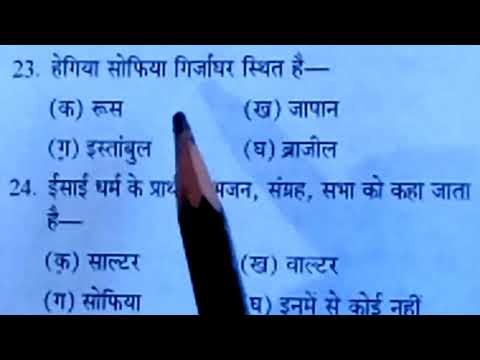 23. हेगिया सोफिया गिर्जाघर स्थित है—
(क) रूस (ख) जापान
(ग़) इस्तांबुल (घ) ब्राजील
24. ईसाई धर्म के भजन, संग्रह, सभा को कहा जाता
है—
(क़) साल्टर (ख) वाल्टर
(ग) सोफिया घ) इनमें से कोई नहीं